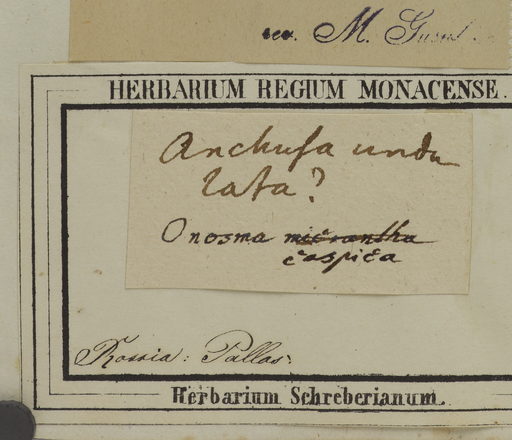 M.
HERBARIUM REGIUM MONACENSE.
Anchusa undu
lata?
Onosma micrantha
caspica
Rossia: Pallas.
Herbarium Schreberianum.